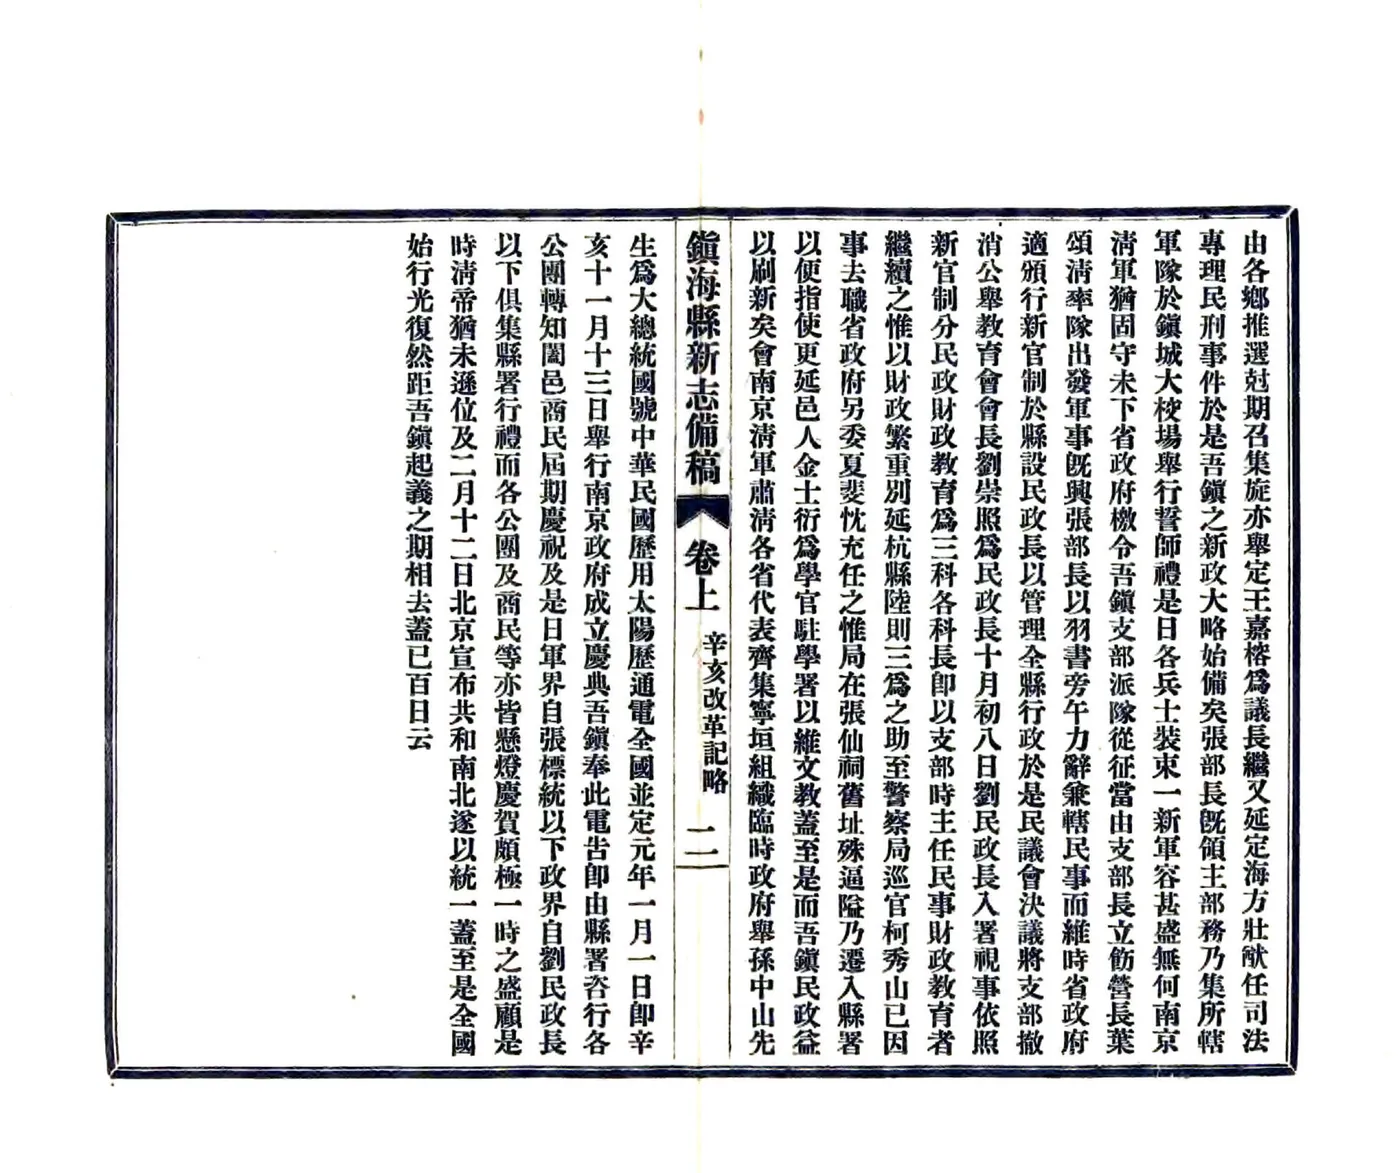 由各鄉推選尅期召集旋亦舉定王嘉榕爲議長繼又延定海方壯猷任司法
專理民刑事件於是吾鎭之新政大略始備矣張部長旣領主部務乃集所轄
軍隊於鎭城大校場舉行誓師禮是日各兵士裝束一新軍容甚盛無何南京
淸軍猶固守未下省政府檄令吾鎭支部派隊從征當由支部長立飭營長葉
頌淸率隊出發軍事旣興張部長以羽書旁午力辭兼轄民事而維時省政府
適頒行新官制於縣設民政長以管理全縣行政於是民議會決議將支部撤
消公舉教育會會長劉崇照爲民政長十月初八日劉民政長入署視事依照
新官制分民政財政教育爲三科各科長卽以支部時主任民事財政教育者
繼續之惟以財政繁重別延杭縣陸則三爲之助至警察局巡官柯秀山已因
事去職省政府另委夏斐忱充任之惟局在張仙祠舊址殊逼隘乃遷入縣署
以便指使更延邑人金士衍爲學官駐學署以維文教蓋至是而吾鎭民政益
以刷新矣會南京淸軍肅淸各省代表齊集寧垣組織臨時政府舉孫中山先
鎭海縣新志備稿
卷上
辛亥改革記略
二
生爲大總統國號中華民國歷用太陽歷通電全國並定元年一月一日卽辛
亥十一月十三日舉行南京政府成立慶典吾鎭奉此電告卽由縣署咨行各
公團轉知闔邑商民屆期慶祝及是日軍界自張標統以下政界自劉民政長
以下俱集縣署行禮而各公團及商民等亦皆懸燈慶賀頗極一時之盛顧是
時淸帝猶未遜位及二月十二日北京宣布共和南北遂以統一蓋至是全國
始行光復然距吾鎭起義之期相去蓋已百日云